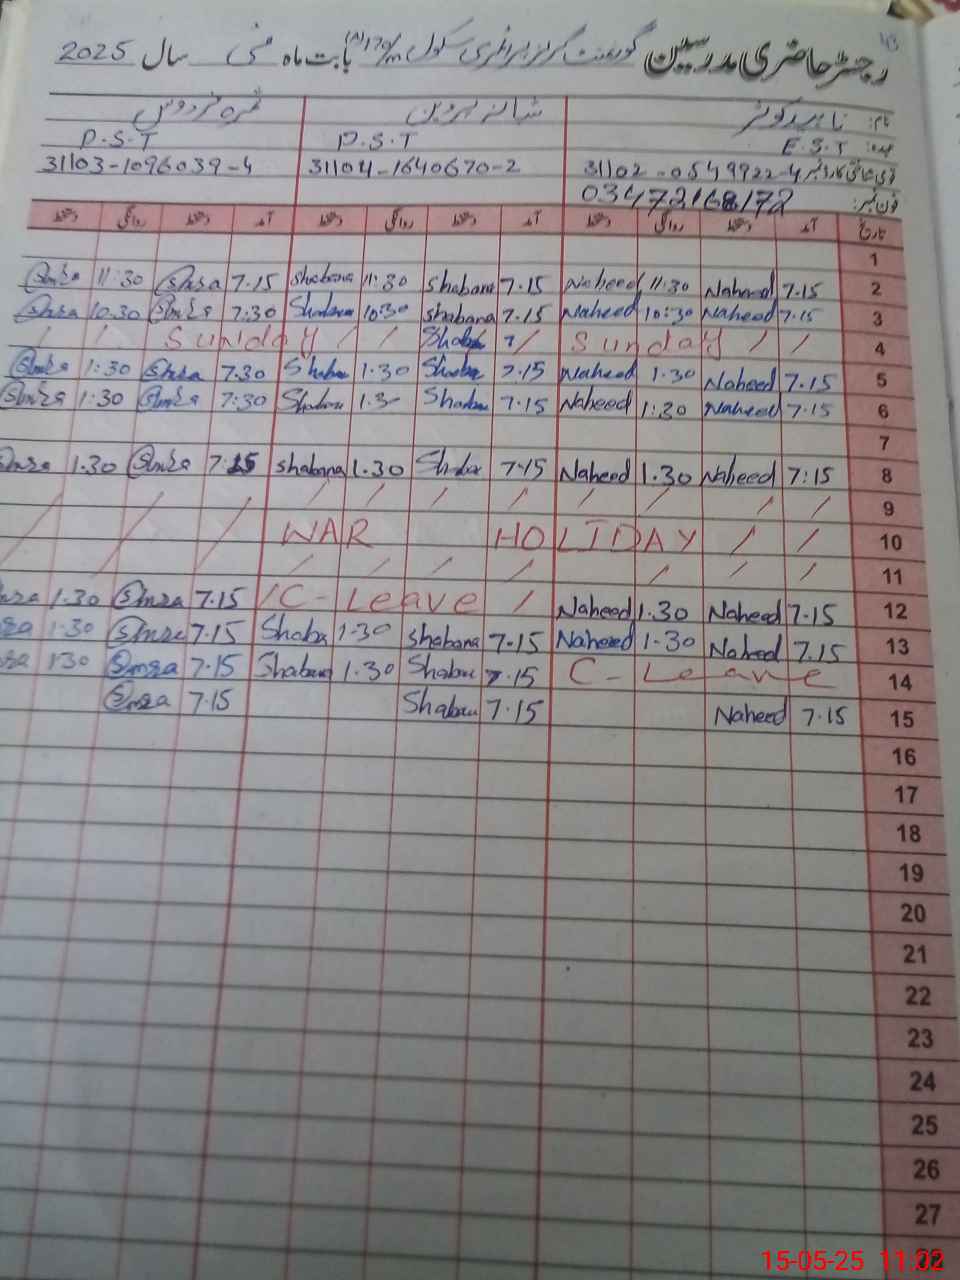 رجسٹر حاضری مدرسین گورنمنٹ گرلز پرائمری سکول بابت ماہ مئی سال 2025
نام: ناہید کوثر شبانہ پروین ثمرہ فردوس
عہدہ: E.S.T P.S.T P.S.T
قومی شناختی کارڈ نمبر 31102-0549922-4 31104-1640670-2 31103-1096039-4
فون نمبر: 03472168172
تاریخ آمد دستخط روانگی دستخط آمد دستخط روانگی دستخط آمد دستخط روانگی دستخط
1
Smra 11:30 Smra 7.15 Shabana 11:30 Shabana 7.15 Naheed 11:30 Naheed 7.15 2
Smra 10.30 Smra 7:30 Shabana 10:30 Shabana 7.15 Naheed 10:30 Naheed 7.15 3
/ / Sunday / / Shaban / Sunday / / 4
Smra 1:30 Smra 7.30 Shaban 1.30 Shaban 7.15 Naheed 1.30 Naheed 7.15 5
Smra 1:30 Smra 7:30 Shaban 1.30 Shaban 7.15 Naheed 1:30 Naheed 7.15 6
7
Smra 1.30 Smra 7.15 Shabana 1.30 Shaban 7.15 Naheed 1.30 Naheed 7:15 8
/ / / / / / / / / / / 9
WAR HOLIDAY / / 10
/ / / / / / / 11
1.30 Smra 7.15 / C-Leave / Naheed 1.30 Naheed 7.15 12
1.30 Smra 7.15 Shaba 1.30 Shabana 7.15 Naheed 1.30 Naheed 7.15 13
130 Smra 7.15 Shaban 1.30 Shaban 7.15 C-Leave 14
Smra 7.15 Shaban 7.15 Naheed 7.15 15
16
17
18
19
20
21
22
23
24
25
26
27
15-05-25 11:02